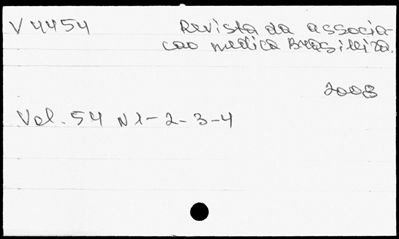 V 4454 Revista da associa-
cao medica Brasileira.
2008
Vol. 54 N 1-2-3-4